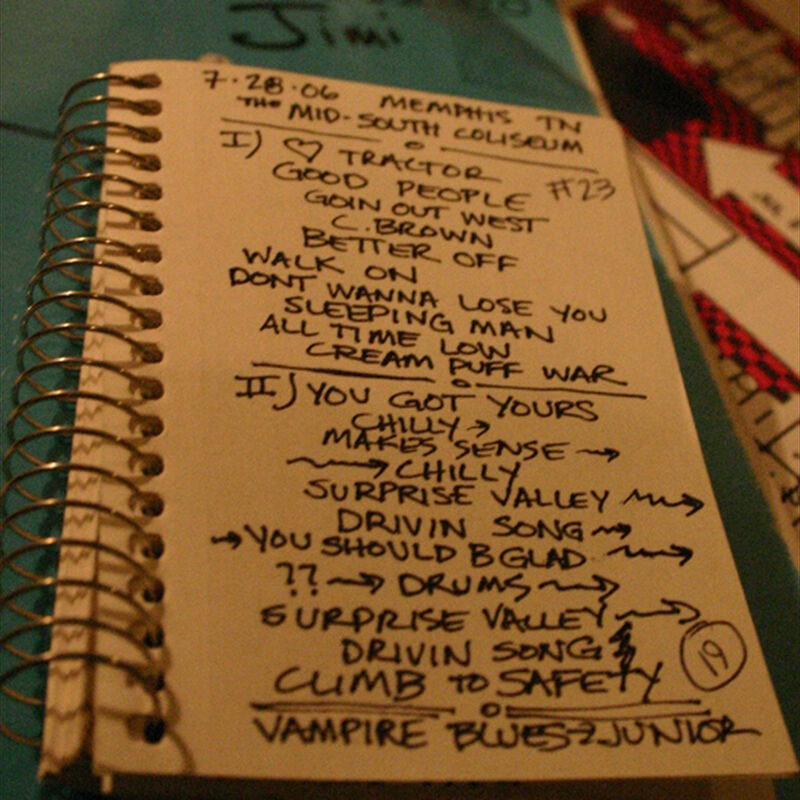 Jimi
7.28.06 MEMPHIS TN
THE MID-SOUTH COLISEUM
I) ♡ TRACTOR
GOOD PEOPLE #23
GOIN OUT WEST
C. BROWN
BETTER OFF
WALK ON
DONT WANNA LOSE YOU
SLEEPING MAN
ALL TIME LOW
CREAM PUFF WAR
II) YOU GOT YOURS
CHILLY →
MAKES SENSE →
→ CHILLY
SURPRISE VALLEY →
DRIVIN SONG →
→ YOU SHOULD B GLAD →
?? → DRUMS →
SURPRISE VALLEY →
DRIVIN SONG
19
CLIMB TO SAFETY
VAMPIRE BLUES → JUNIOR